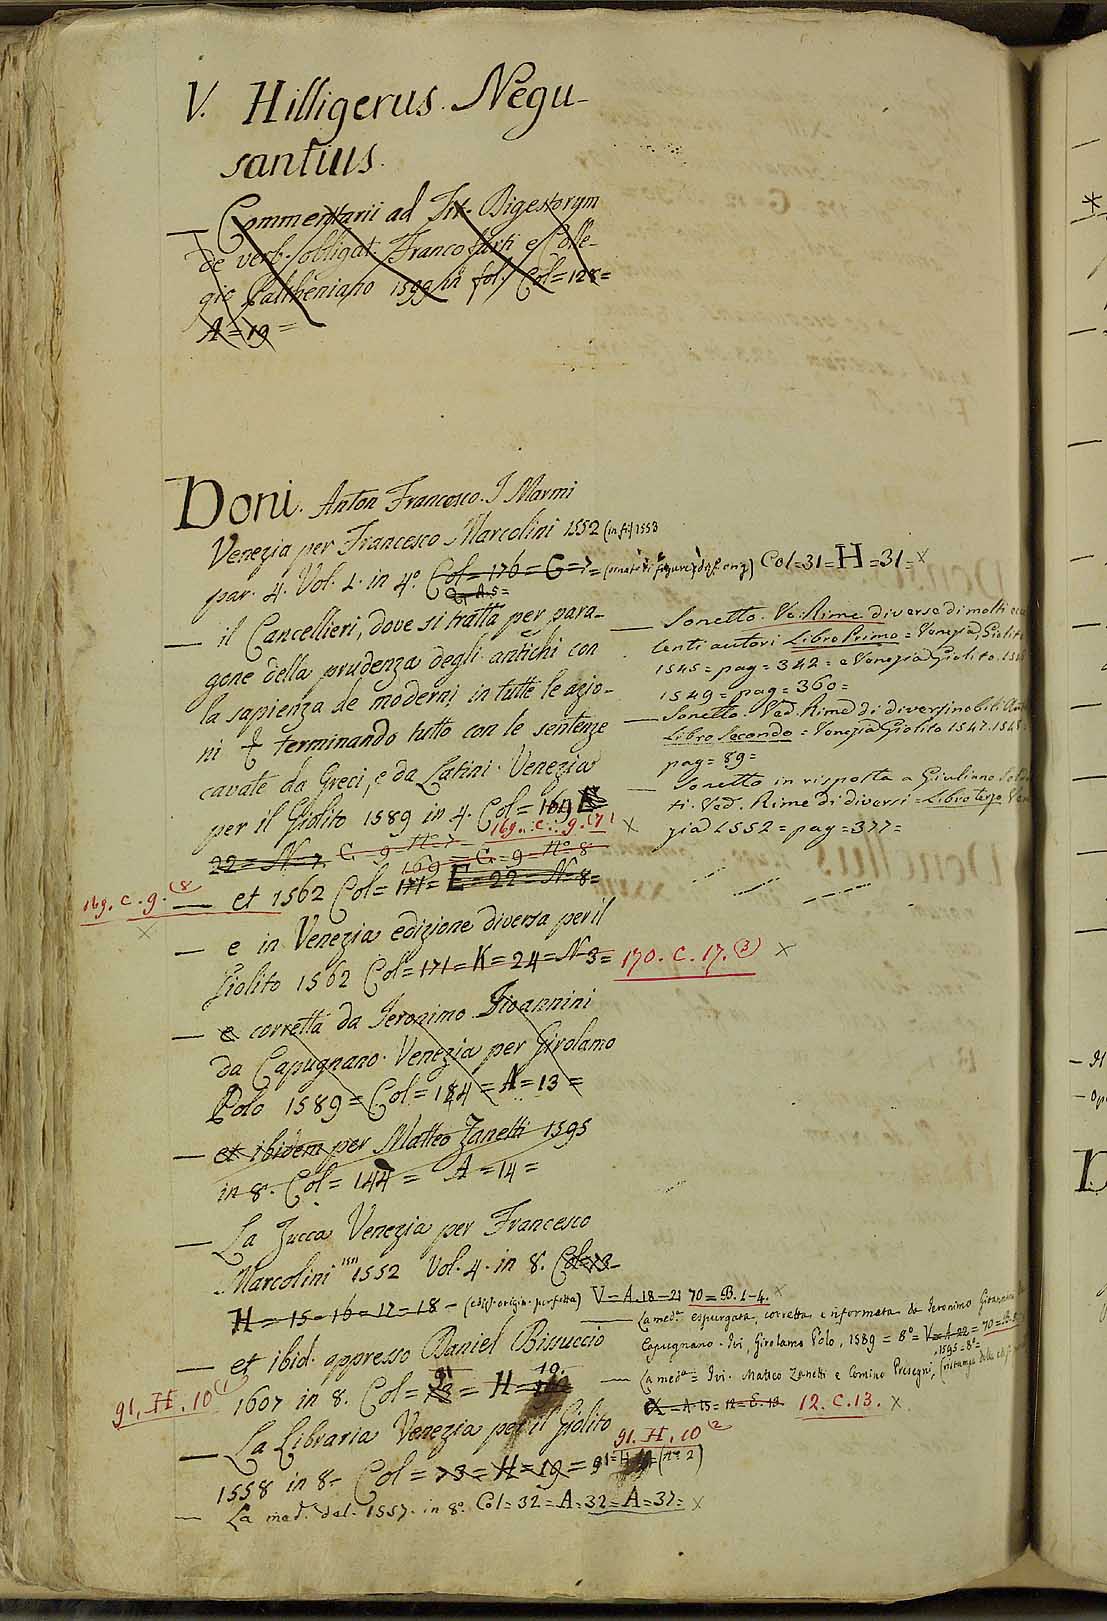 V. Hilligerus. Negu-
santius.
— Commentarii ad Tit. Digestorum
de verb. obligat. Francofurti e Colle-
gio Paltheniano 1599 in fol. Col=128=
A=19=
Doni. Anton Francesco. I Marmi
Venezia per Francesco Marcolini 1552 (in fi) 1553
par. 4. Vol. 1. in 4º. Col=176=G=7= Col=31=H=31= x
A.5=
— il Cancellieri, dove si tratta per para-
gone della prudenza degli antichi con
la sapienza de moderni in tutte le azio-
ni & terminando tutto con le sentenze
cavate da Greci, e da Latini. Venezia
per il Giolito 1589 in 4. Col=169 E=
169. C. 9. (7) x
22=N=7 C=9=Nº=7
169=C=9=Nº=8
169. C. 9. (8)
x
— et 1562 Col=171=E=22=N=8=
— e in Venezia edizione diversa per il
Giolito 1562 Col=171=K=24=N=3= 170. C. 17. (3) x
— e corretta da Ieronimo Gioannini
da Capugnano. Venezia per Girolamo
Polo 1589=Col=184=A=13=
— et ibidem per Matteo Zanetti 1595
in 8. Col=144= A=14=
— La Zucca Venezia per Francesco
Marcolini 1551 1552 Vol. 4. in 8. Col=73=
H=15=16=17=18= (ediz. origin. perfetta) V=A.18=21 70=B.1-4. x
— et ibid. appresso Daniel Bissuccio
91 19.
91. H. 10 (1)
1607 in 8. Col=73=H=
— La Libraria Venezia per il Giolito
91. H. 10 (2)
1558 in 8= Col=73=H=19= 91=H (nº 2)
— La med. del. 1557. in 8º Col=32=A=32=A=37= x
— Sonetto. Ve. Rime diverse di molti
lenti autori Libro Primo=Venezia Giolito
1545=pag=342= e Venezia Giolito.
1549=pag=360=
— Sonetto. Ved. Rime di diversi nobili
Libro Secondo=Venezia Giolito 1547.1548
pag=89=
— Sonetto in risposta a Giuliano
ti. Ved. Rime di diversi=Libro terzo
zia 1552=pag=377=
— La med.ª espurgata, corretta e riformata da Ieronimo
Capugnano. Ivi, Girolamo Polo, 1589=8º=V=A 22=70=B.
1595=8º=
— La med.ª=Ivi. Matteo Zanetti e Comino Presegni,
A=15=12=C.13 12. C. 13. x